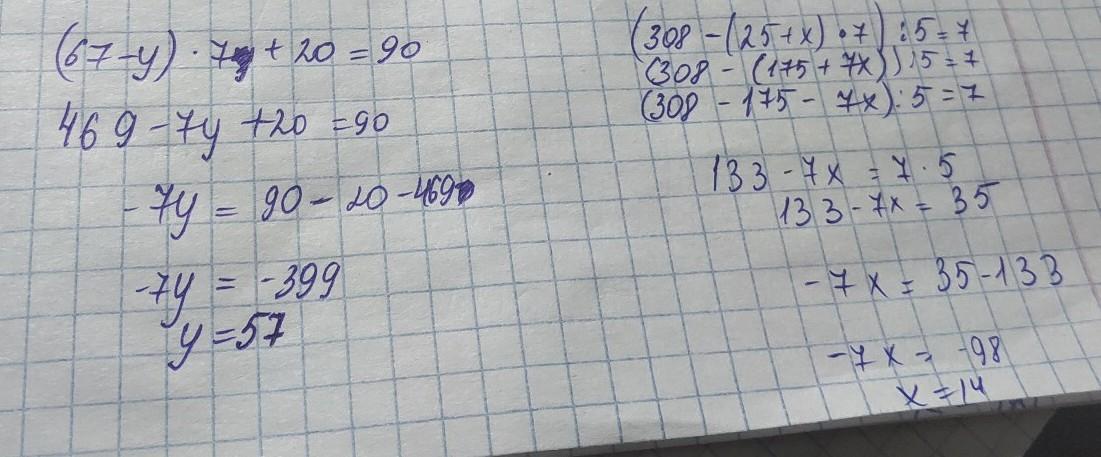 (67-y) · 7 + 20 = 90
469 - 7y + 20 = 90
-7y = 90 - 20 - 469
-7y = -399
y = 57
(308 - (25+x) · 7) : 5 = 7
(308 - (175 + 7x)) : 5 = 7
(308 - 175 - 7x) : 5 = 7
133 - 7x = 7 · 5
133 - 7x = 35
-7x = 35 - 133
-7x = -98
x = 14